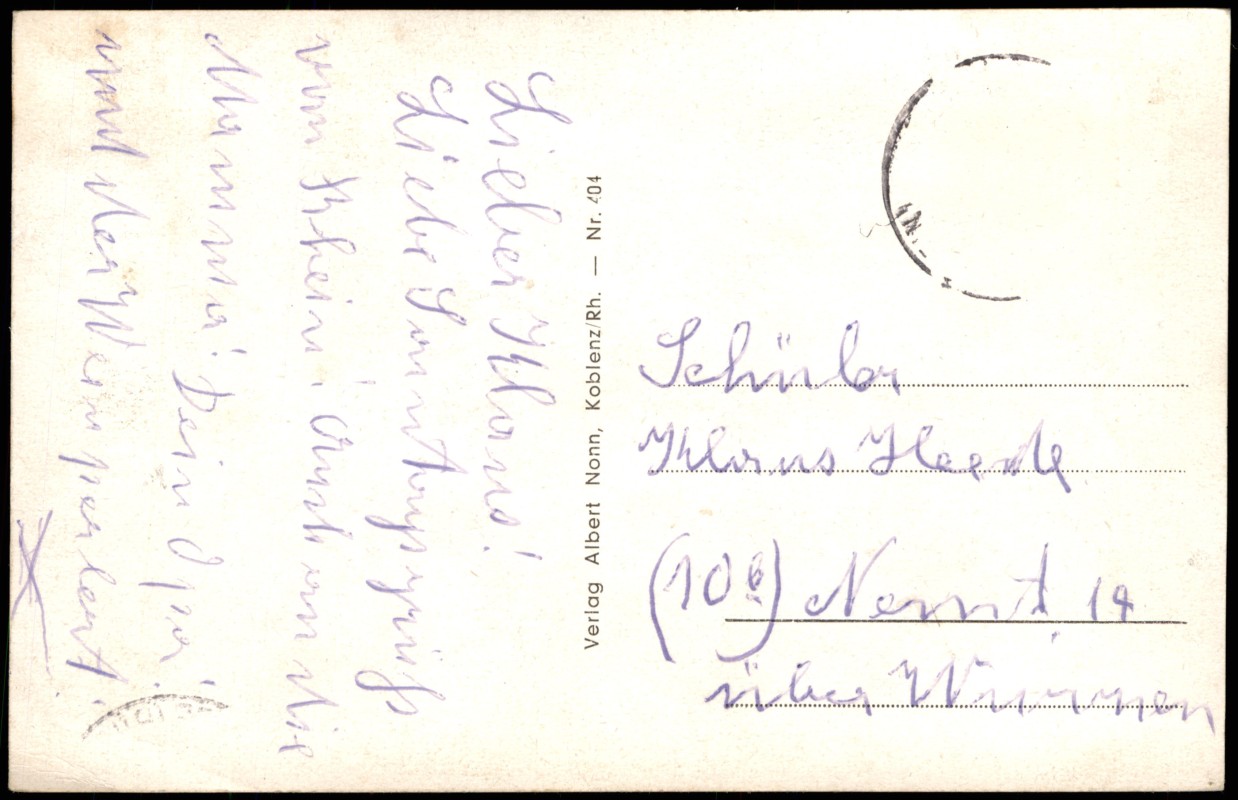 Lieber Klaus!
Liebe Sonntagsgrüße
vom Rhein! Auch an die
Mamma! Dein Opa!
und der Wein perlert.
Verlag Albert Nonn, Koblenz/Rh. — Nr. 404
Schüler
Klaus Heede
(10b) Nemt 18
über Wurzen